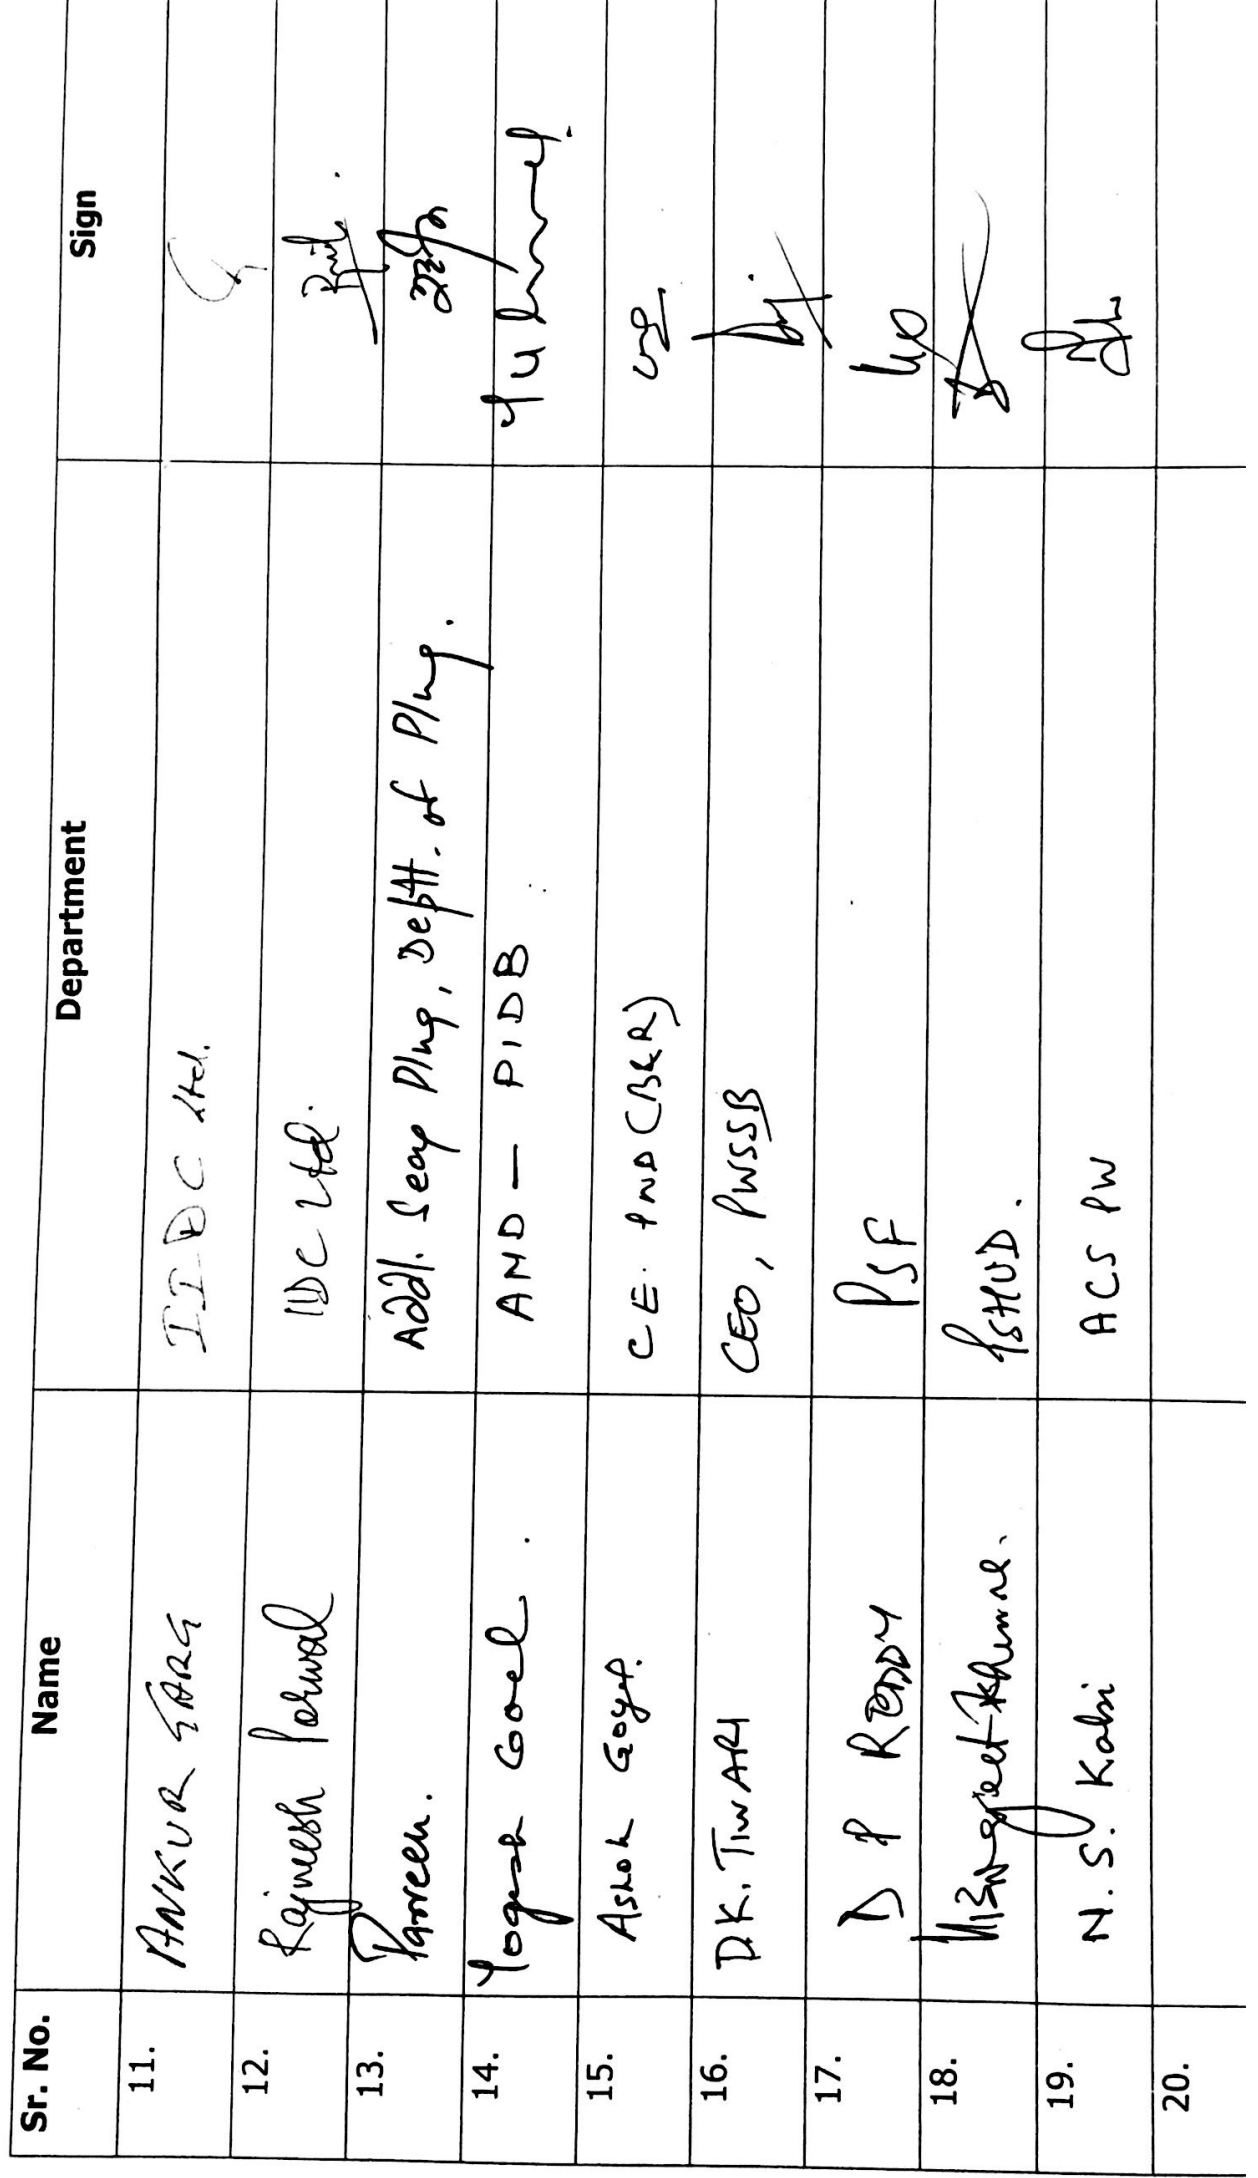 Sr. No. Name Department Sign
11. ANKUR GARG IIDC Ltd.
12. Rajneesh Porwal IIDC Ltd.
13. Parveen. Addl. Secy Plng, Deptt. of Plng.
14. Yogesh Goel. AMD - PIDB
15. Ashok Goyal. C E. PWD (B&R)
16. D.K. TIWARI CEO, PWSSB
17. D P REDDY PSF
18. PSHUD.
19. N. S. Kalsi ACS PW
20.